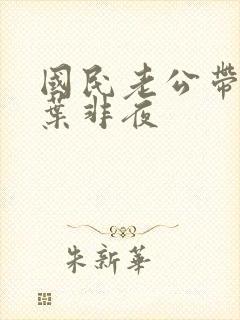 國民老公帶
葉非夜
朱新華